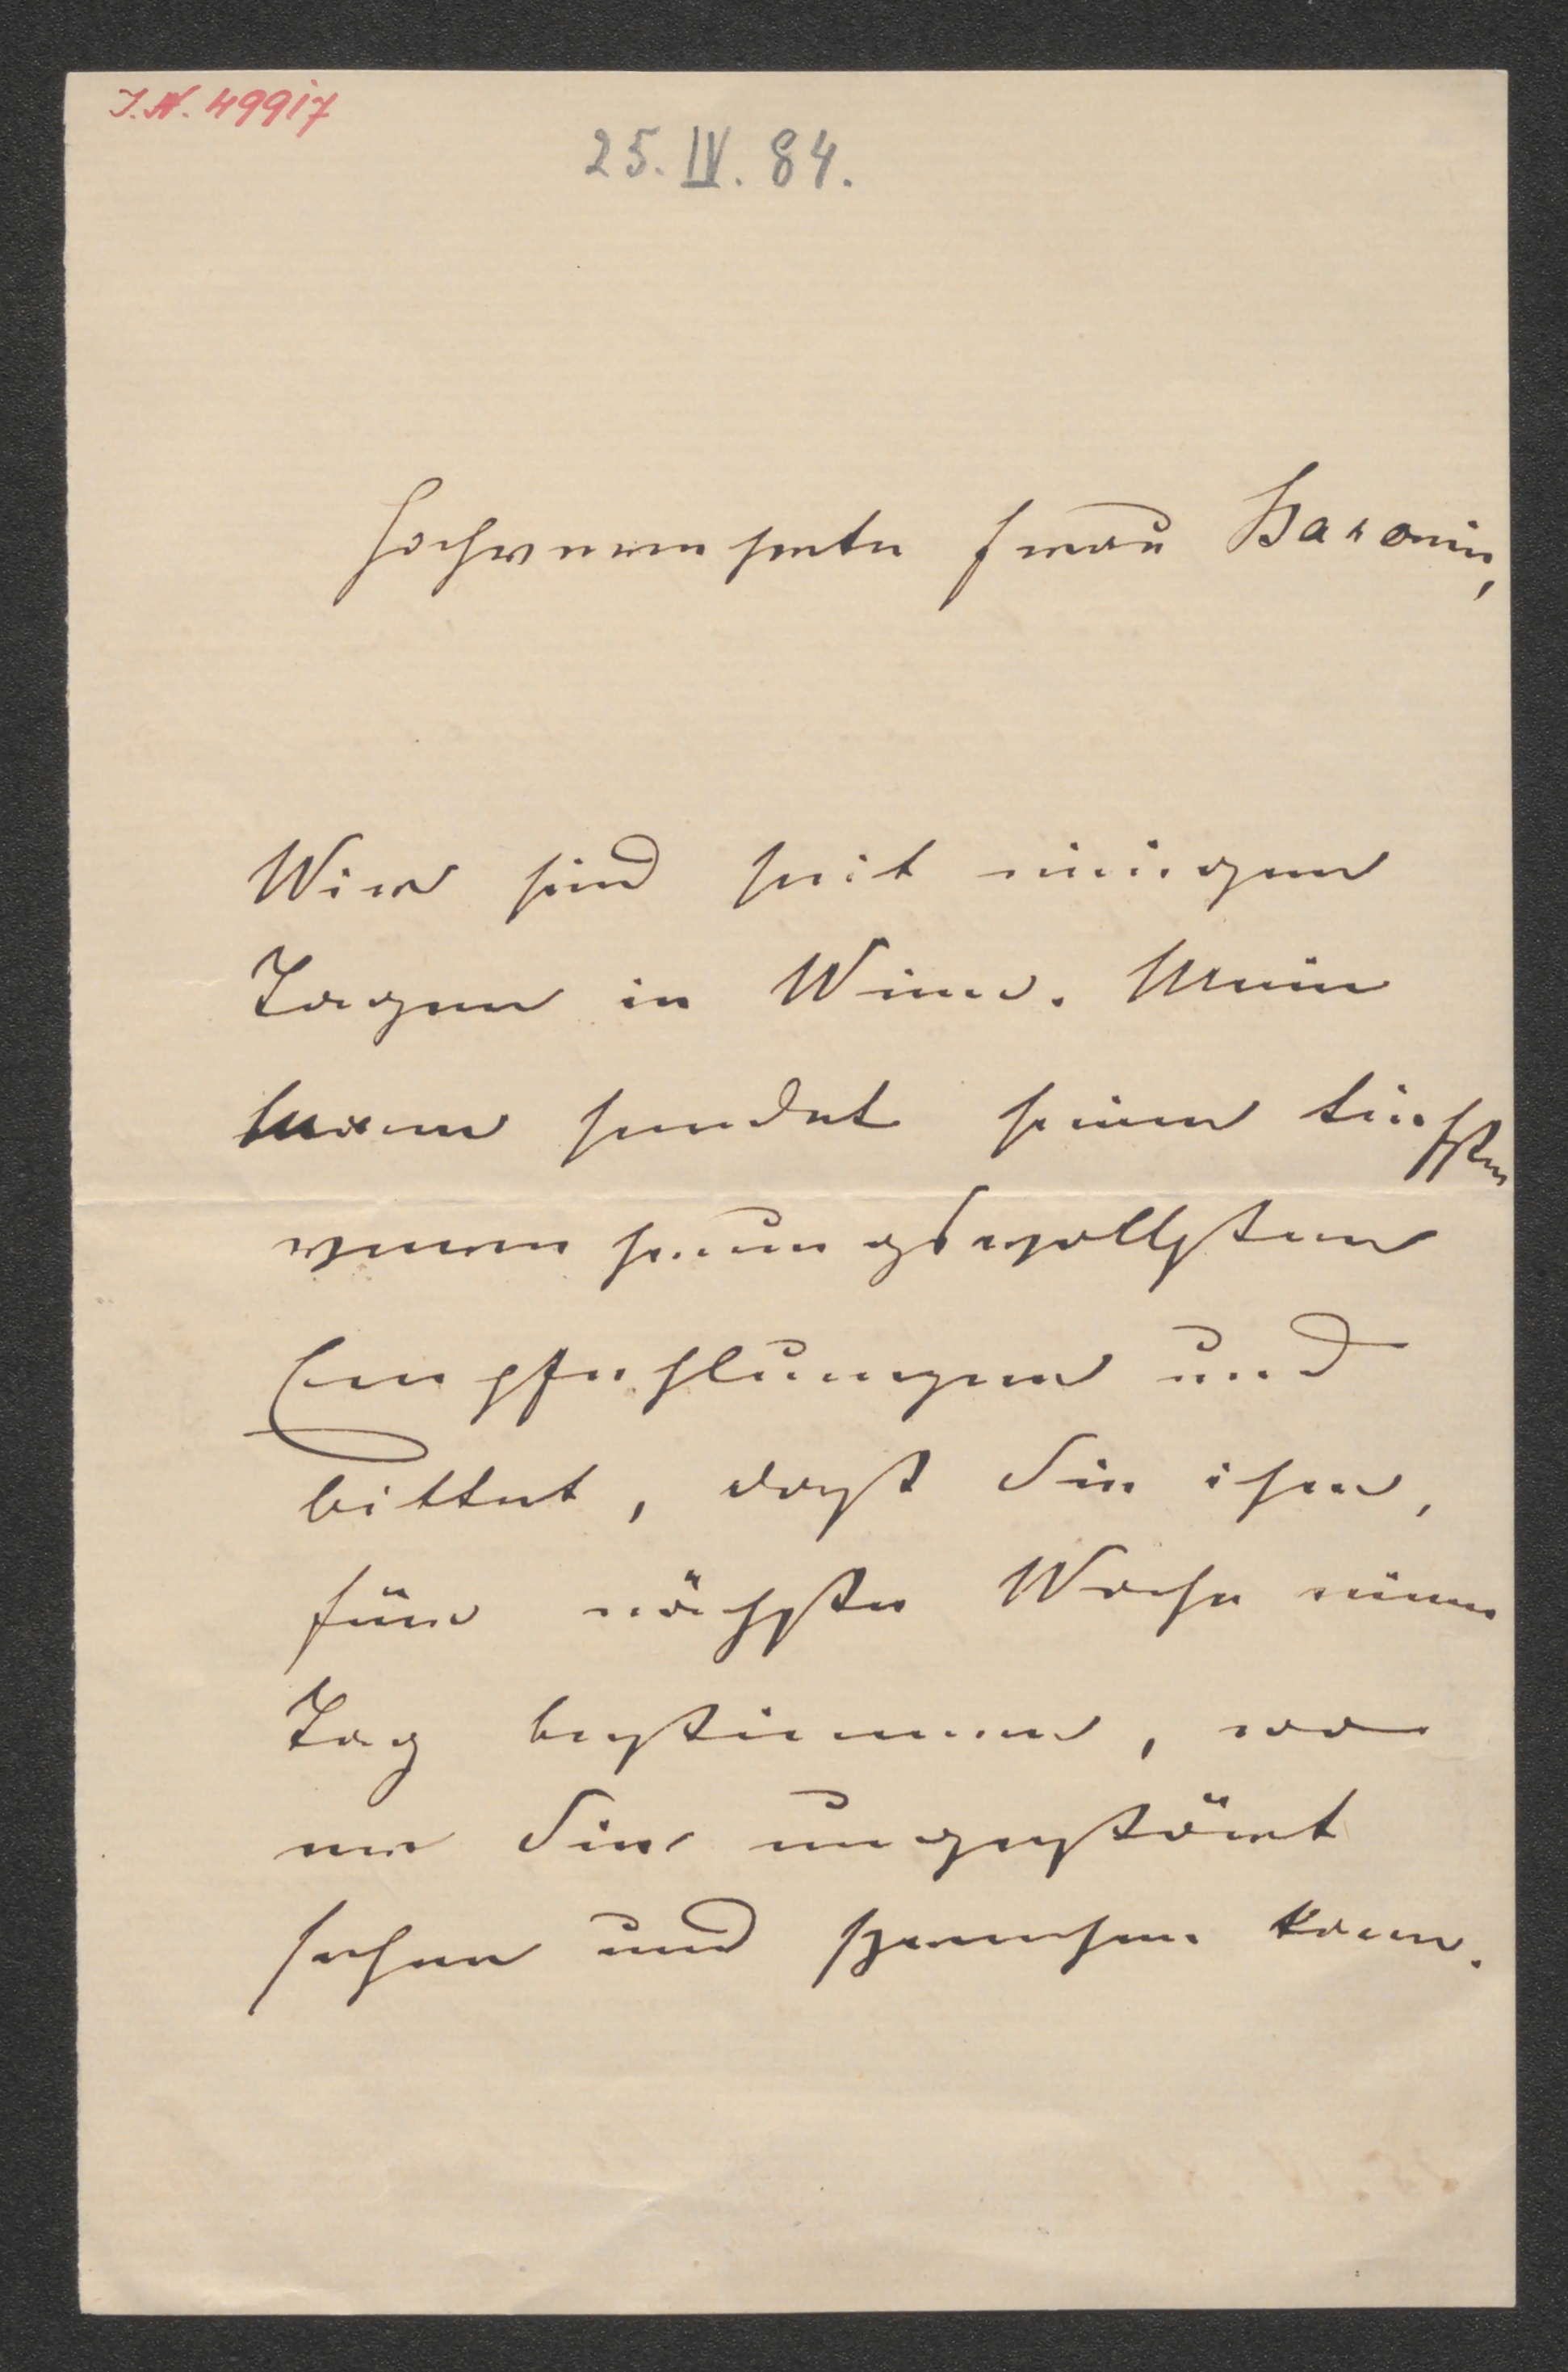 I.N. 49917
25. IV. 84.
Hochverehrte Frau Baronin,
Wir sind seit einigen
Tagen in Wien. Mein
Mann sendet seine tiefsten
verehrungsvollsten
Empfehlungen und
bittet, daß Sie ihm,
für nächste Woche einen
Tag bestimmen, wo
er Sie ungestört
sehen und sprechen kann.